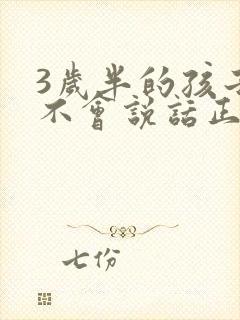 3歲半的孩子
不會說話正
七份